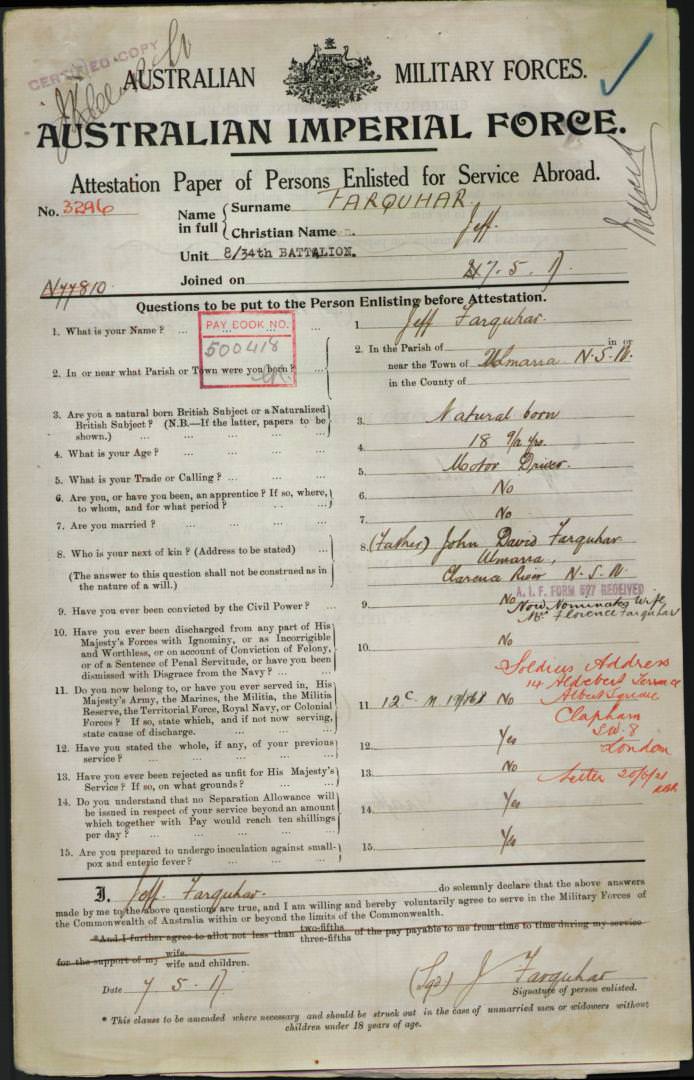 CERTIFIED COPY
AUSTRALIAN MILITARY FORCES.
AUSTRALIAN IMPERIAL FORCE.
Attestation Paper of Persons Enlisted for Service Abroad.
No. 3296
Name in full { Surname FARQUHAR.
Christian Name Jeff.
Unit 8/34th BATTALION.
Joined on 7.5.17
N77810
Questions to be put to the Person Enlisting before Attestation.
PAY BOOK NO.
500418
1. What is your Name? ... ... ... ... 1 Jeff Farquhar.
2. In or near what Parish or Town were you born? ... 2. In the Parish of in or
near the Town of Ulmarra N.S.W.
in the County of
3. Are you a natural born British Subject or a Naturalized
British Subject? (N.B.—If the latter, papers to be
shown.) ... ... ... ... 3. Natural born
4. What is your Age? ... ... ... ... 4. 18 9/12 yrs.
5. What is your Trade or Calling? ... ... ... ... 5. Motor Driver.
6. Are you, or have you been, an apprentice? If so, where,
to whom, and for what period? ... ... 6. No
7. Are you married? ... ... ... ... 7. No
8. Who is your next of kin? (Address to be stated) ... 8. (Father) John David Farquhar
Ulmarra,
(The answer to this question shall not be construed as in
the nature of a will.) Clarence River N.S.W.
A.I.F. FORM 627 RECEIVED
9. Have you ever been convicted by the Civil Power? ... 9 No
Now Nominates Wife
Mrs Florence Farquhar
10. Have you ever been discharged from any part of His
Majesty's Forces with Ignominy, or as Incorrigible
and Worthless, or on account of Conviction of Felony,
or of a Sentence of Penal Servitude, or have you been
dismissed with Disgrace from the Navy? ... ... 10. No
11. Do you now belong to, or have you ever served in, His
Majesty's Army, the Marines, the Militia, the Militia
Reserve, the Territorial Force, Royal Navy, or Colonial
Forces? If so, state which, and if not now serving,
state cause of discharge. ... ... ... 11 No
Soldiers Address
14 Aldebert Terrace
Albert Square
Clapham
S.W.8
London
Letter 20/5/21
12. Have you stated the whole, if any, of your previous
service? ... ... ... ... 12. Yes
13. Have you ever been rejected as unfit for His Majesty's
Service? If so, on what grounds? ... ... 13 No
14. Do you understand that no Separation Allowance will
be issued in respect of your service beyond an amount
which together with Pay would reach ten shillings
per day? ... ... ... ... 14 Yes
15. Are you prepared to undergo inoculation against small-
pox and enteric fever? ... ... ... 15. Yes
I, Jeff Farquhar. do solemnly declare that the above answers
made by me to the above questions are true, and I am willing and hereby voluntarily agree to serve in the Military Forces of
the Commonwealth of Australia within or beyond the limits of the Commonwealth.
*And I further agree to allot not less than two-fifths three-fifths of the pay payable to me from time to time during my service
for the support of my wife. wife and children.
Date 7.5.17 (Sgd) J Farquhar
Signature of person enlisted.
* This clause to be amended where necessary and should be struck out in the case of unmarried men or widowers without
children under 18 years of age.